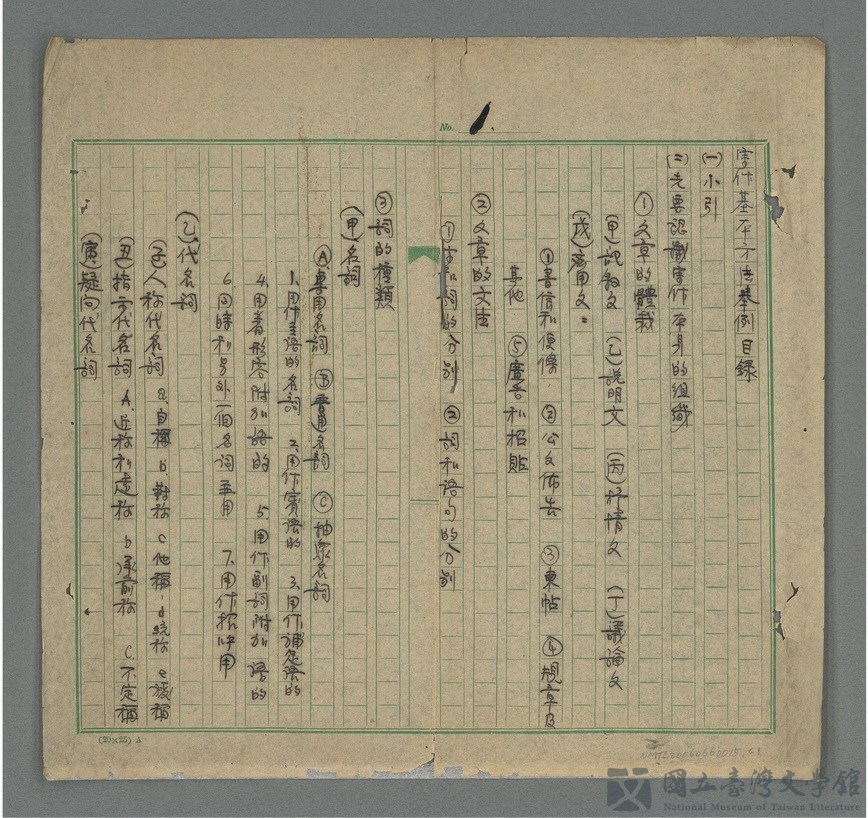 No. 1.
寫作基本方法舉例目錄
(一)小引
(二)先要認識寫作本身的組織
①文章的體裁
(甲)記敘文 (乙)說明文 (丙)抒情文 (丁)議論文
(戊)應用文：
①書信和便條 ②公文佈告 ③柬帖 ④規章及
其他 ⑤廣告和招貼
②文章的文法
①字和詞的分別 ②詞和語句的分別
③詞的種類
(甲)名詞
Ⓐ專用名詞 Ⓑ普通名詞 Ⓒ抽象名詞
1.用作主語的名詞 2.用作賓語的 3.用作補足語的
4.用着形容附加語的 5.用作副詞附加語的
6.同時和另外一個名詞並用 7.用作招呼用
(乙)代名詞
(子)人称代名詞 a.自稱 b.對称 c.他稱 d.統称 e.複稱
(丑)指示代名詞 A.近称和遠称 b.承前称 C.不定稱
(寅)疑问代名詞
(20×25) A
國立臺灣文學館
National Museum of Taiwan Literature